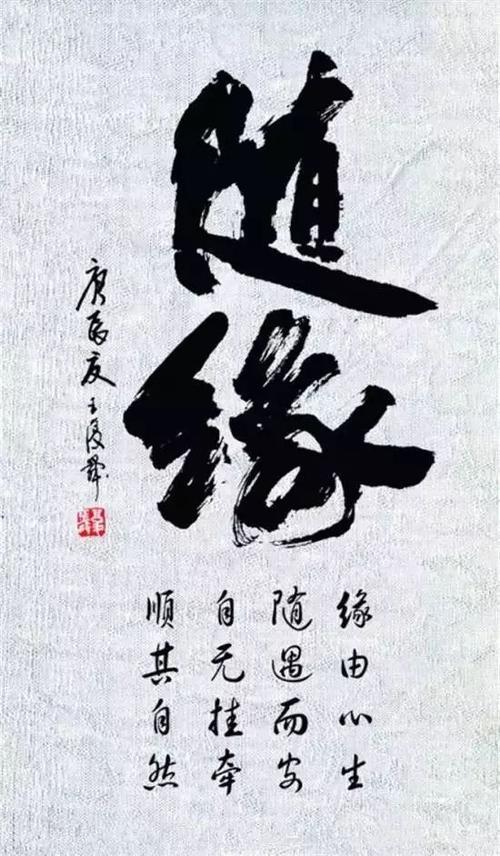 随缘
庚辰夏王
缘由心生
随遇而安
自无挂牵
順其自然